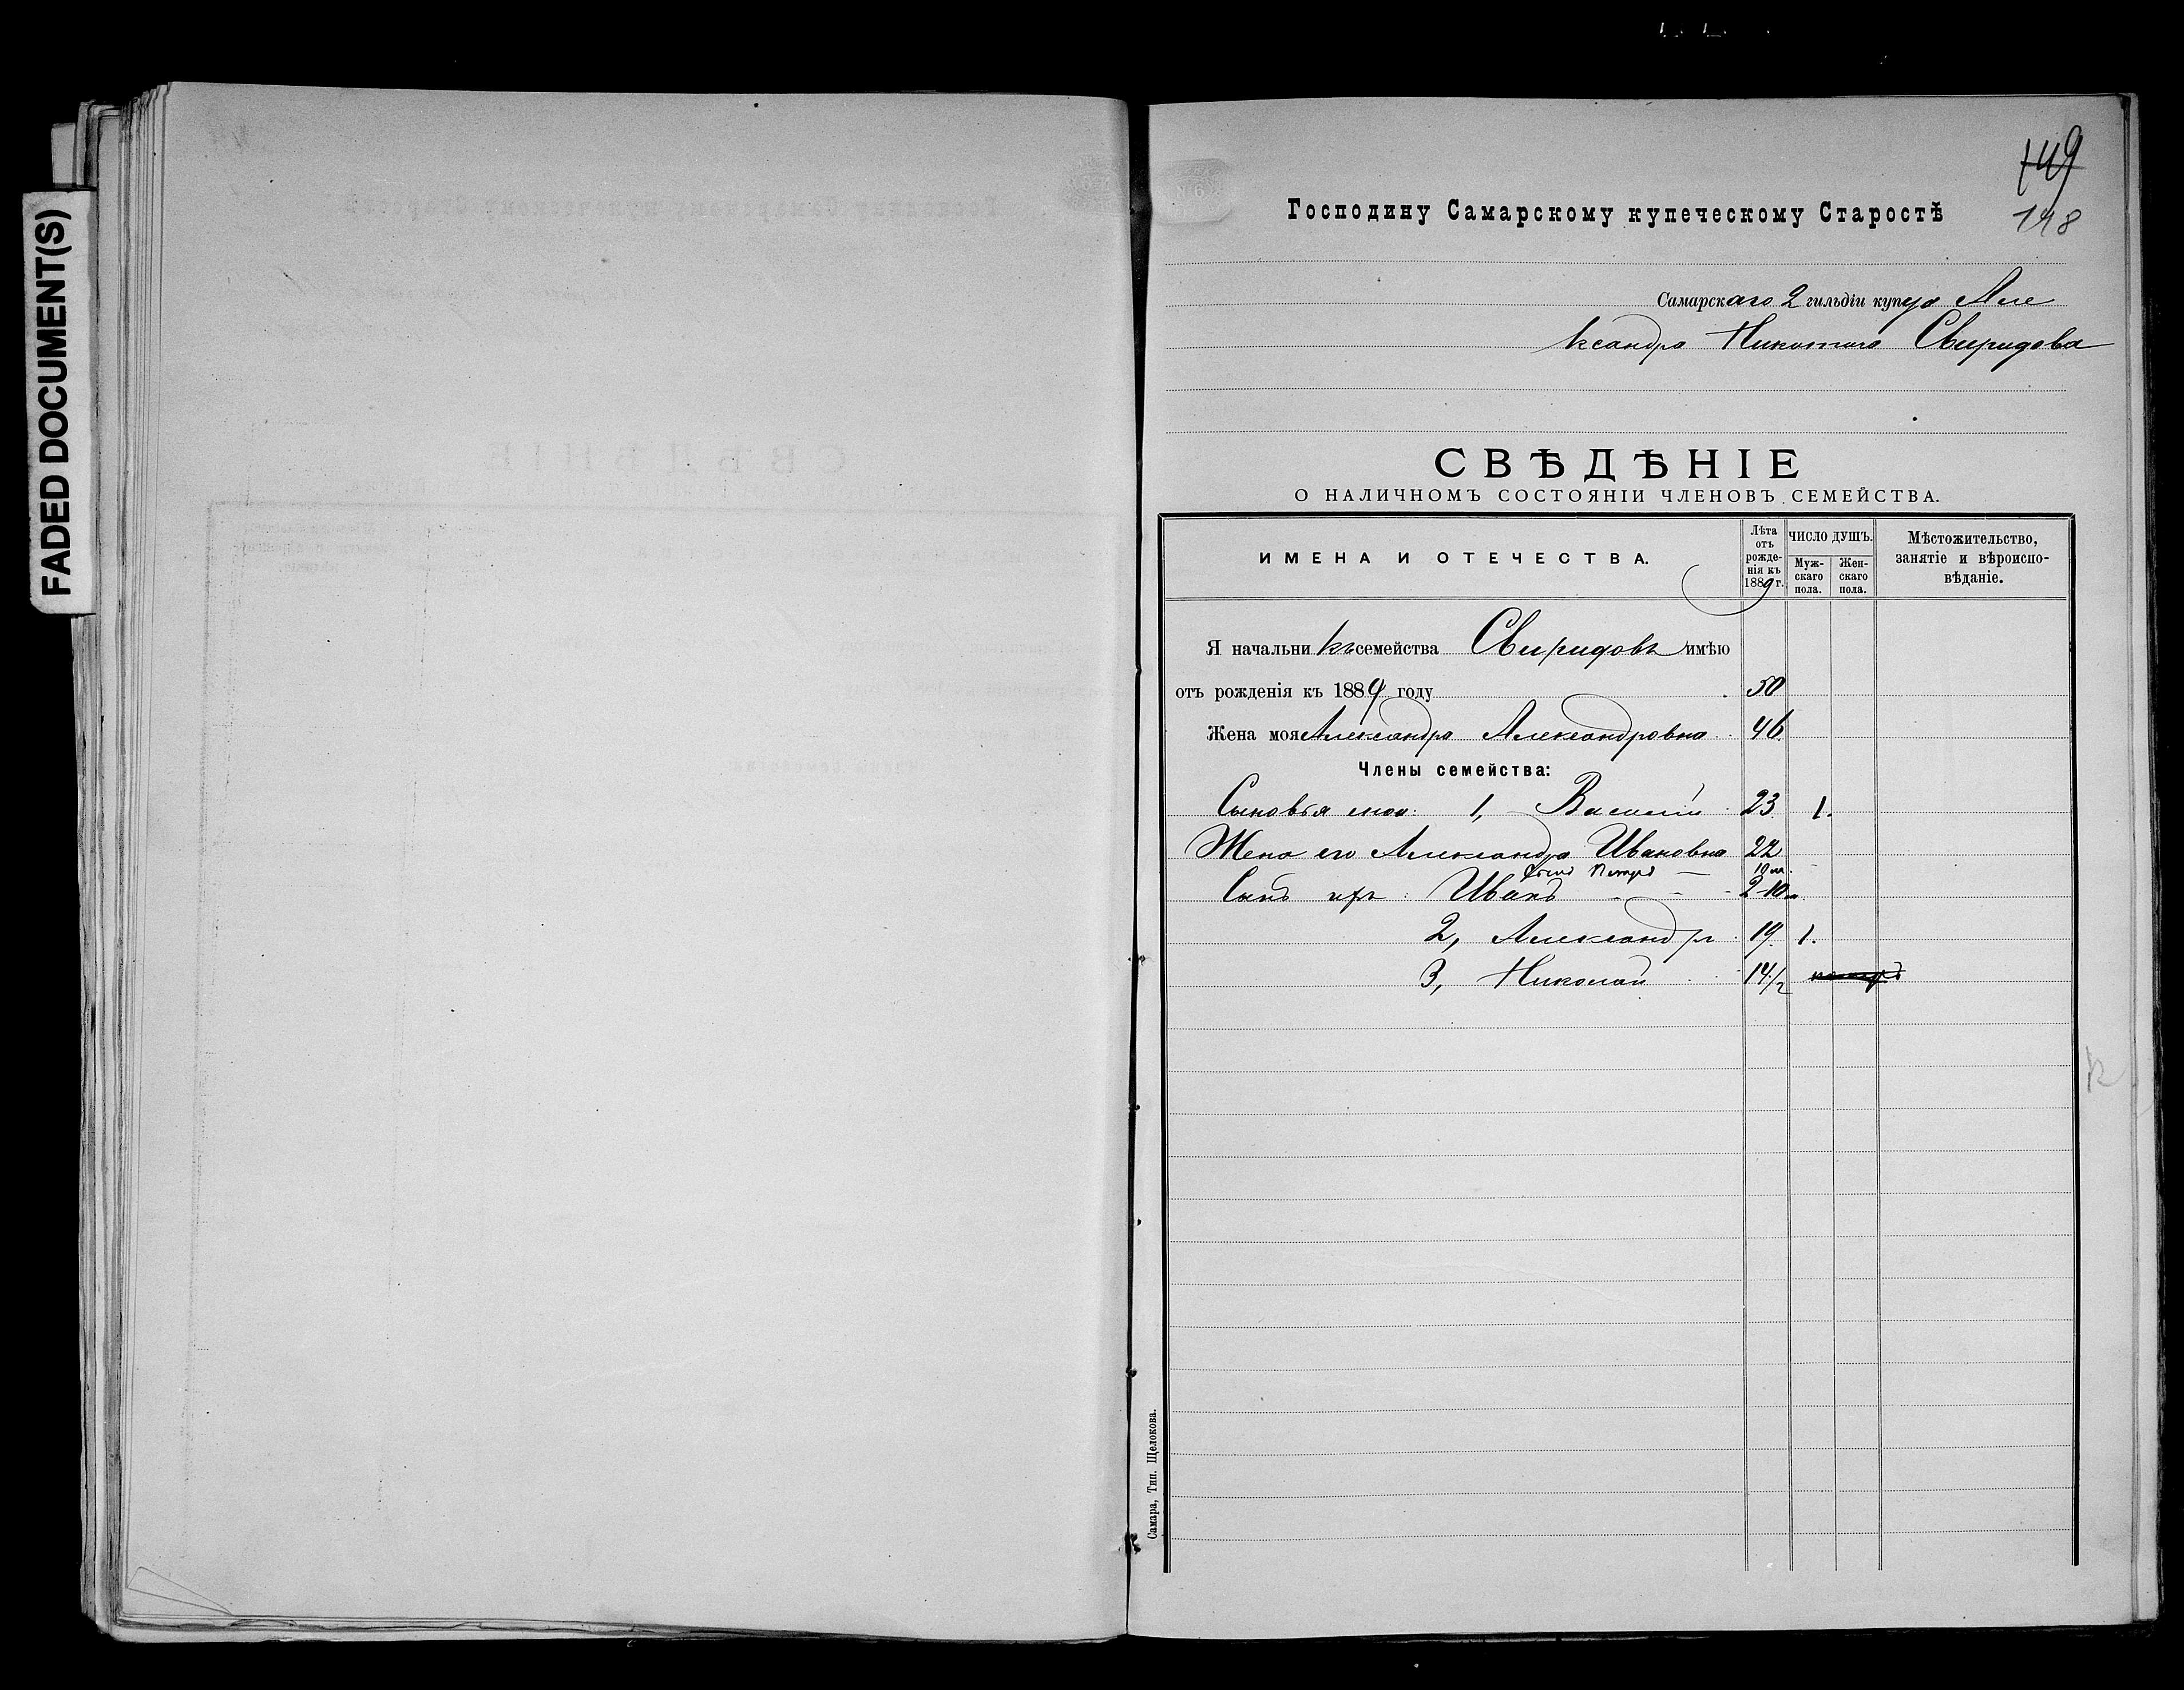 FADED DOCUMENT(S)
149
148
Господину Самарскому купеческому Старостѣ
Самарскаго 2 гильдіи купца Але
ксандра Никитича Свиридова
СВѢДѢНІЕ
О НАЛИЧНОМЪ СОСТОЯНІИ ЧЛЕНОВЪ СЕМЕЙСТВА.
ИМЕНА И ОТЕЧЕСТВА.
Лѣта отъ рожде-нія къ 1889 г.
ЧИСЛО ДУШЪ.
Муж-скаго пола.
Жен-скаго пола.
Мѣстожительство, занятіе и вѣроиспо-вѣданіе.
Я начальникъ семейства Свиридовъ имѣю
отъ рожденія къ 1889 году 50
Жена моя Александра Александровна 46
Члены семейства:
Сыновья мои: 1, Василій 23 1.
Жена его Александра Ивановна 22
Петръ 10 м.
Сынъ ихъ: Иванъ 2-10 м
2, Александръ 19. 1.
3, Николай 14 1/2
Самара, Тип. Щелокова.